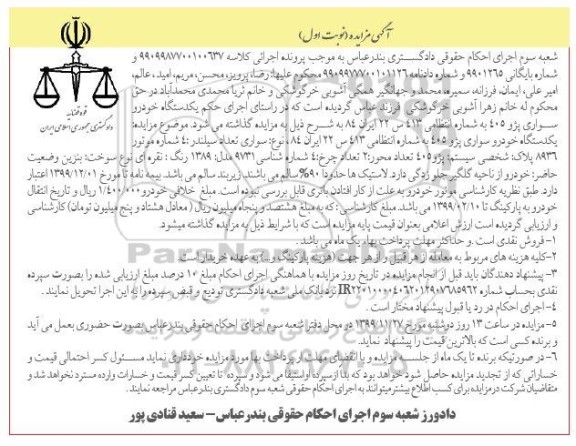 آگهی مزایده (نوبت اول)
شعبه سوم اجرای احکام حقوقی دادگستری بندرعباس به موجب پرونده اجرائی کلاسه ۹۹۰۹۹۸۷۷۰۰۱۰۰۶۳۷ و
شماره بایگانی ۹۹۰۱۲۶۵ و شماره دادنامه ۹۹۰۹۹۷۷۷۰۰۱۰۱۱۲۶ محکوم علیها: رضا، پرویز، محسن، مریم، امید، عالم،
امیر علی، ایمان، فرزانه، سمیره، محمد و جهانگیر همگی آشوبی خرگوشکی و خانم ثریا محمدی محمدآباد در حق
محکوم له خانم زهرا آشوبی خرگوشکی فرزند عباس گردیده است که در راستای اجرای حکم یکدستگاه خودرو
سواری پژو ۴۰۵ به شماره انتظامی ۴۱۳ س ۲۲ ایران ۸۴ به شرح ذیل به مزایده گذاشته می شود. موضوع مزایده:
یکدستگاه خودرو سواری پژو ۴۰۵ به شماره انتظامی ۴۱۳ س ۲۲ ایران ۸۴، نوع: سواری تعداد سیلندر :۴ شماره موتور
۸۹۳۶ پلاک: شخصی سیستم: پژو ۴۰۵ تعداد محور:۲ تعداد چرخ:۴ شماره شاسی ۹۷۳۱ مدل: ۱۳۸۹ رنگ : نقره ای نوع سوخت: بنزین وضعیت
حاضر: خودرو از ناحیه گلگیر جلو زدگی دارد. لاستیک ها حدودا ۹۰% سالم می باشند. زیربند سالم می باشد. بیمه نامه تا مورخ ۱۳۹۹/۱۲/۰۱ اعتبار
دارد. طبق نظریه کارشناسی موتور خودرو به علت از کار افتادن باتری قابل بررسی نبوده است. مبلغ خلافی خودرو ۱/۴۰۰/۰۰۰ ریال و تاریخ انتقال
خودرو به پارکینگ تا ۱۳۹۹/۰۲/۱۰ می باشد. مبلغ کارشناسی: که به مبلغ هشتصد و پنجاه میلیون ریال ( معادل هشتاد و پنج میلیون تومان) کارشناسی
و ارزیابی گردیده است ارزش اعلامی بعنوان قیمت پایه مزایده است که با شرایط ذیل به مزایده گذاشته میشود.
۱- فروش نقدی است. و حداکثر مهلت پرداخت بهاء یک ماه می باشد.
۲-کلیه هزینه های مربوط به معامله از هر قبیل و از هر جهت (هزینه پارکینگ و..) به عهده خریدار است
۳- پیشنهاد دهندگان باید قبل از انجام مزایده در تاریخ روز مزایده با هماهنگی اجرای احکام مبلغ ۱۰ درصد مبلغ ارزیابی شده را بصورت سپرده
نقدی بحساب شماره IR۲۲۰۱۰۰۰۰۴۰۶۲۰۱۲۹۰۷۶۸۵۹۶۲ نزد بانک ملی شعبه دادگستری تودیع و قبض سپرده را به این اجرا تحویل نمایند.
۴- اجرای احکام در رد یا قبول پیشنهاد مختار است.
۵- مزایده در ساعت ۱۳ روز دوشنبه مورخ ۱۳۹۹/۱۱/۲۷ در محل دفتر شعبه سوم اجرای احکام حقوقی بندرعباس بصورت حضوری بعمل می آید
و برنده کسی است که بالاترین قیمت را پیشنهاد نماید.
۶- در صورتیکه برنده تا یک ماه از جلسه مزایده و یا انقضای مهلت از پرداخت بها مورد مزایده خودداری نماید مسئول کسر احتمالی قیمت و
خساراتی که از تجدید مزایده حاصل شود خواهد بود که بدوا از سپرده او استیفا می شود و سپرده تا تعیین کسر قیمت و خسارات وارده مسترد نخواهد شد و
متقاضیان شرکت در مزایده برای کسب اطلاع بیشتر میتوانند به اجرای احکام حقوقی شعبه سوم دادگستری بندرعباس مراجعه نمایند.
دادورز شعبه سوم اجرای احکام حقوقی بندرعباس- سعید قنادی پور
قوه قضائیه
دادگستری جمهوری اسلامی ایران